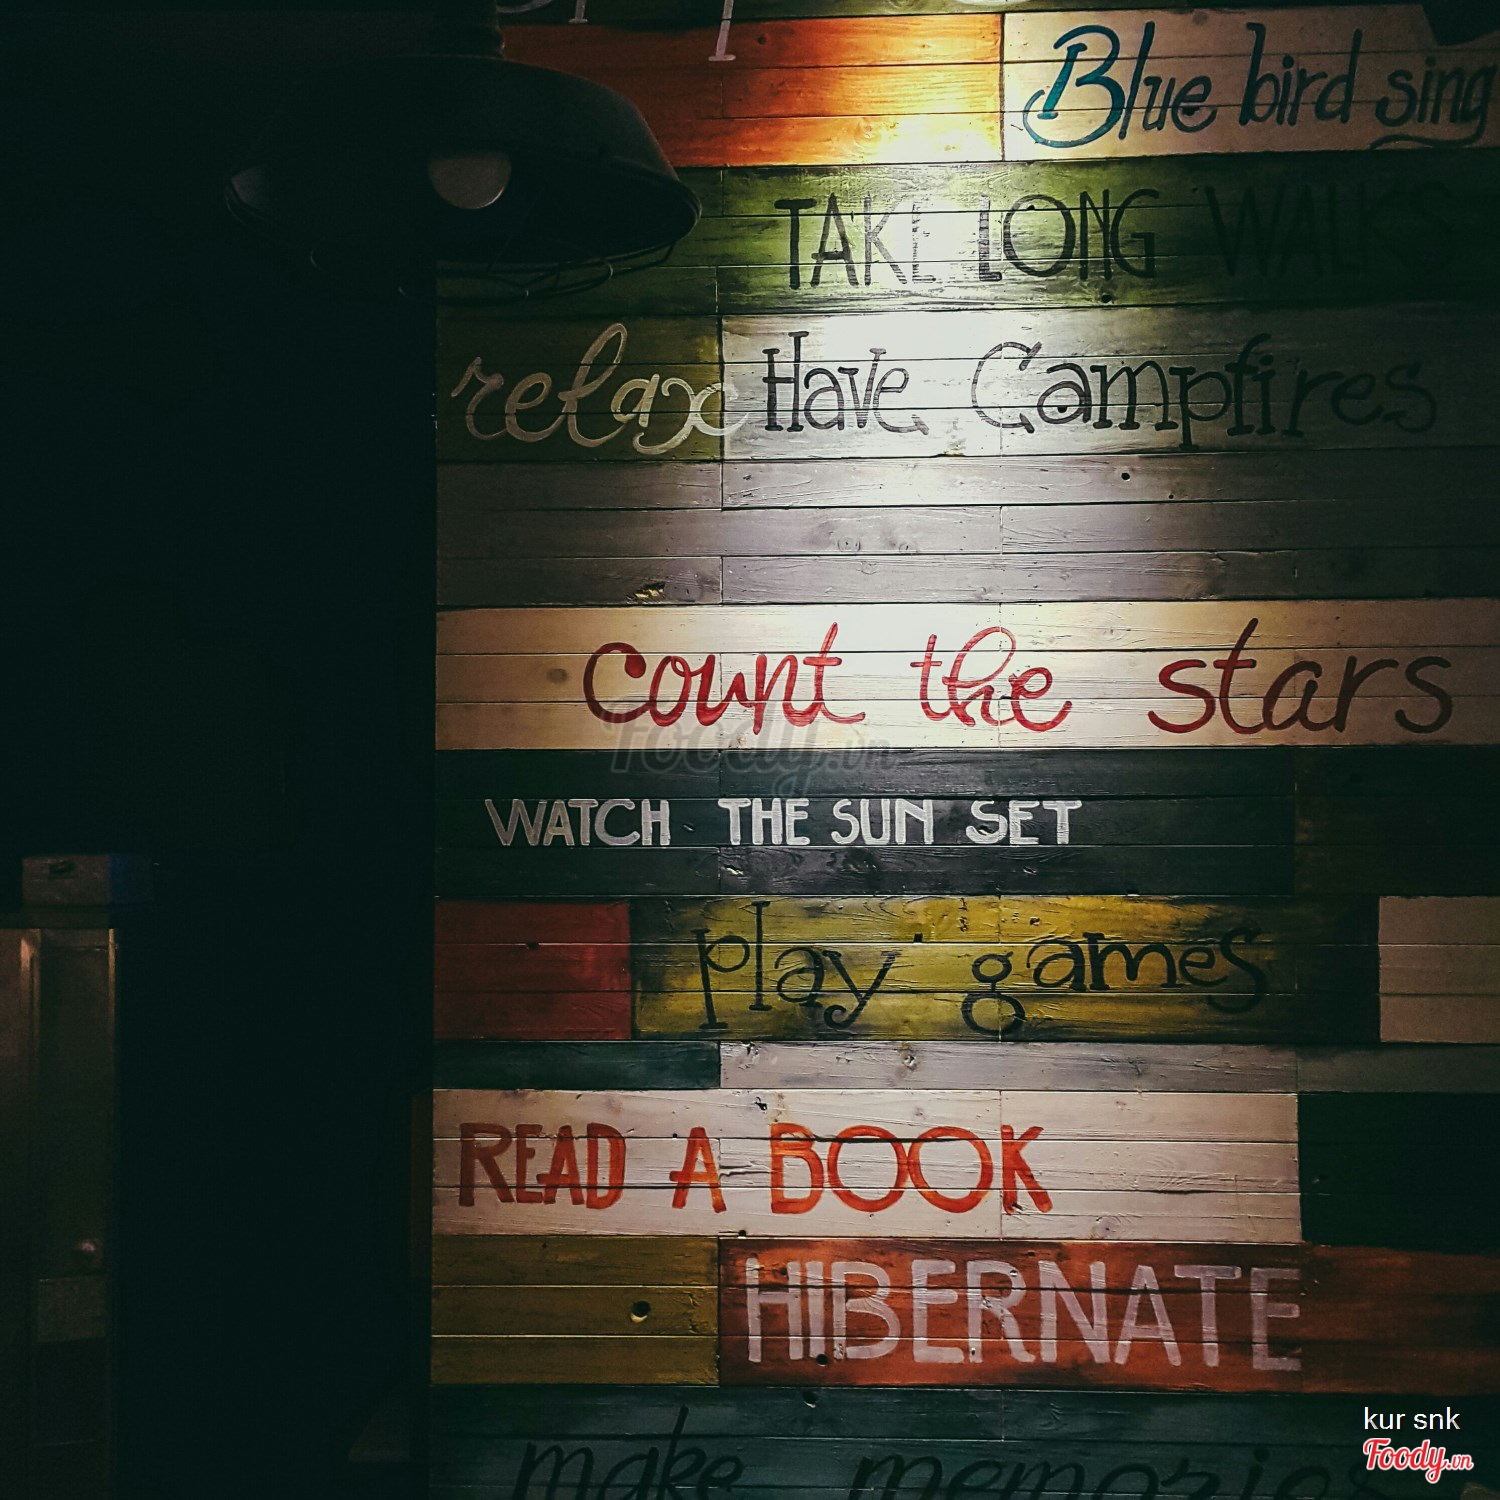 Blue bird sing
TAKE LONG WALKS
relax Have Campfires
count the stars
foody.vn
WATCH THE SUN SET
play games
READ A BOOK
HIBERNATE
kur snk
Foody.vn
make memories